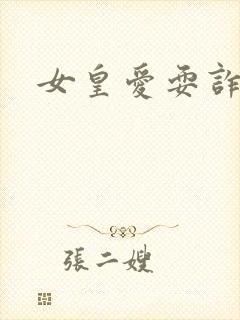 女皇愛耍詐
張二嫂